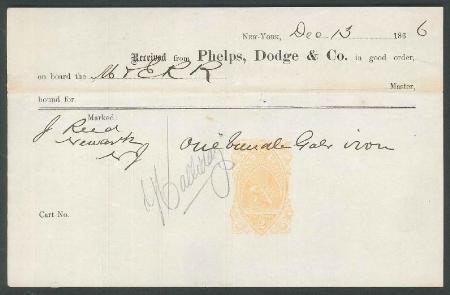 New-York, Dec 13 1866
Received from Phelps, Dodge & Co. in good order,
on board the M & E R R
Master,
bound for
Marked
J Reed
Newark
NJ
One bundle Galv iron
Cart No.